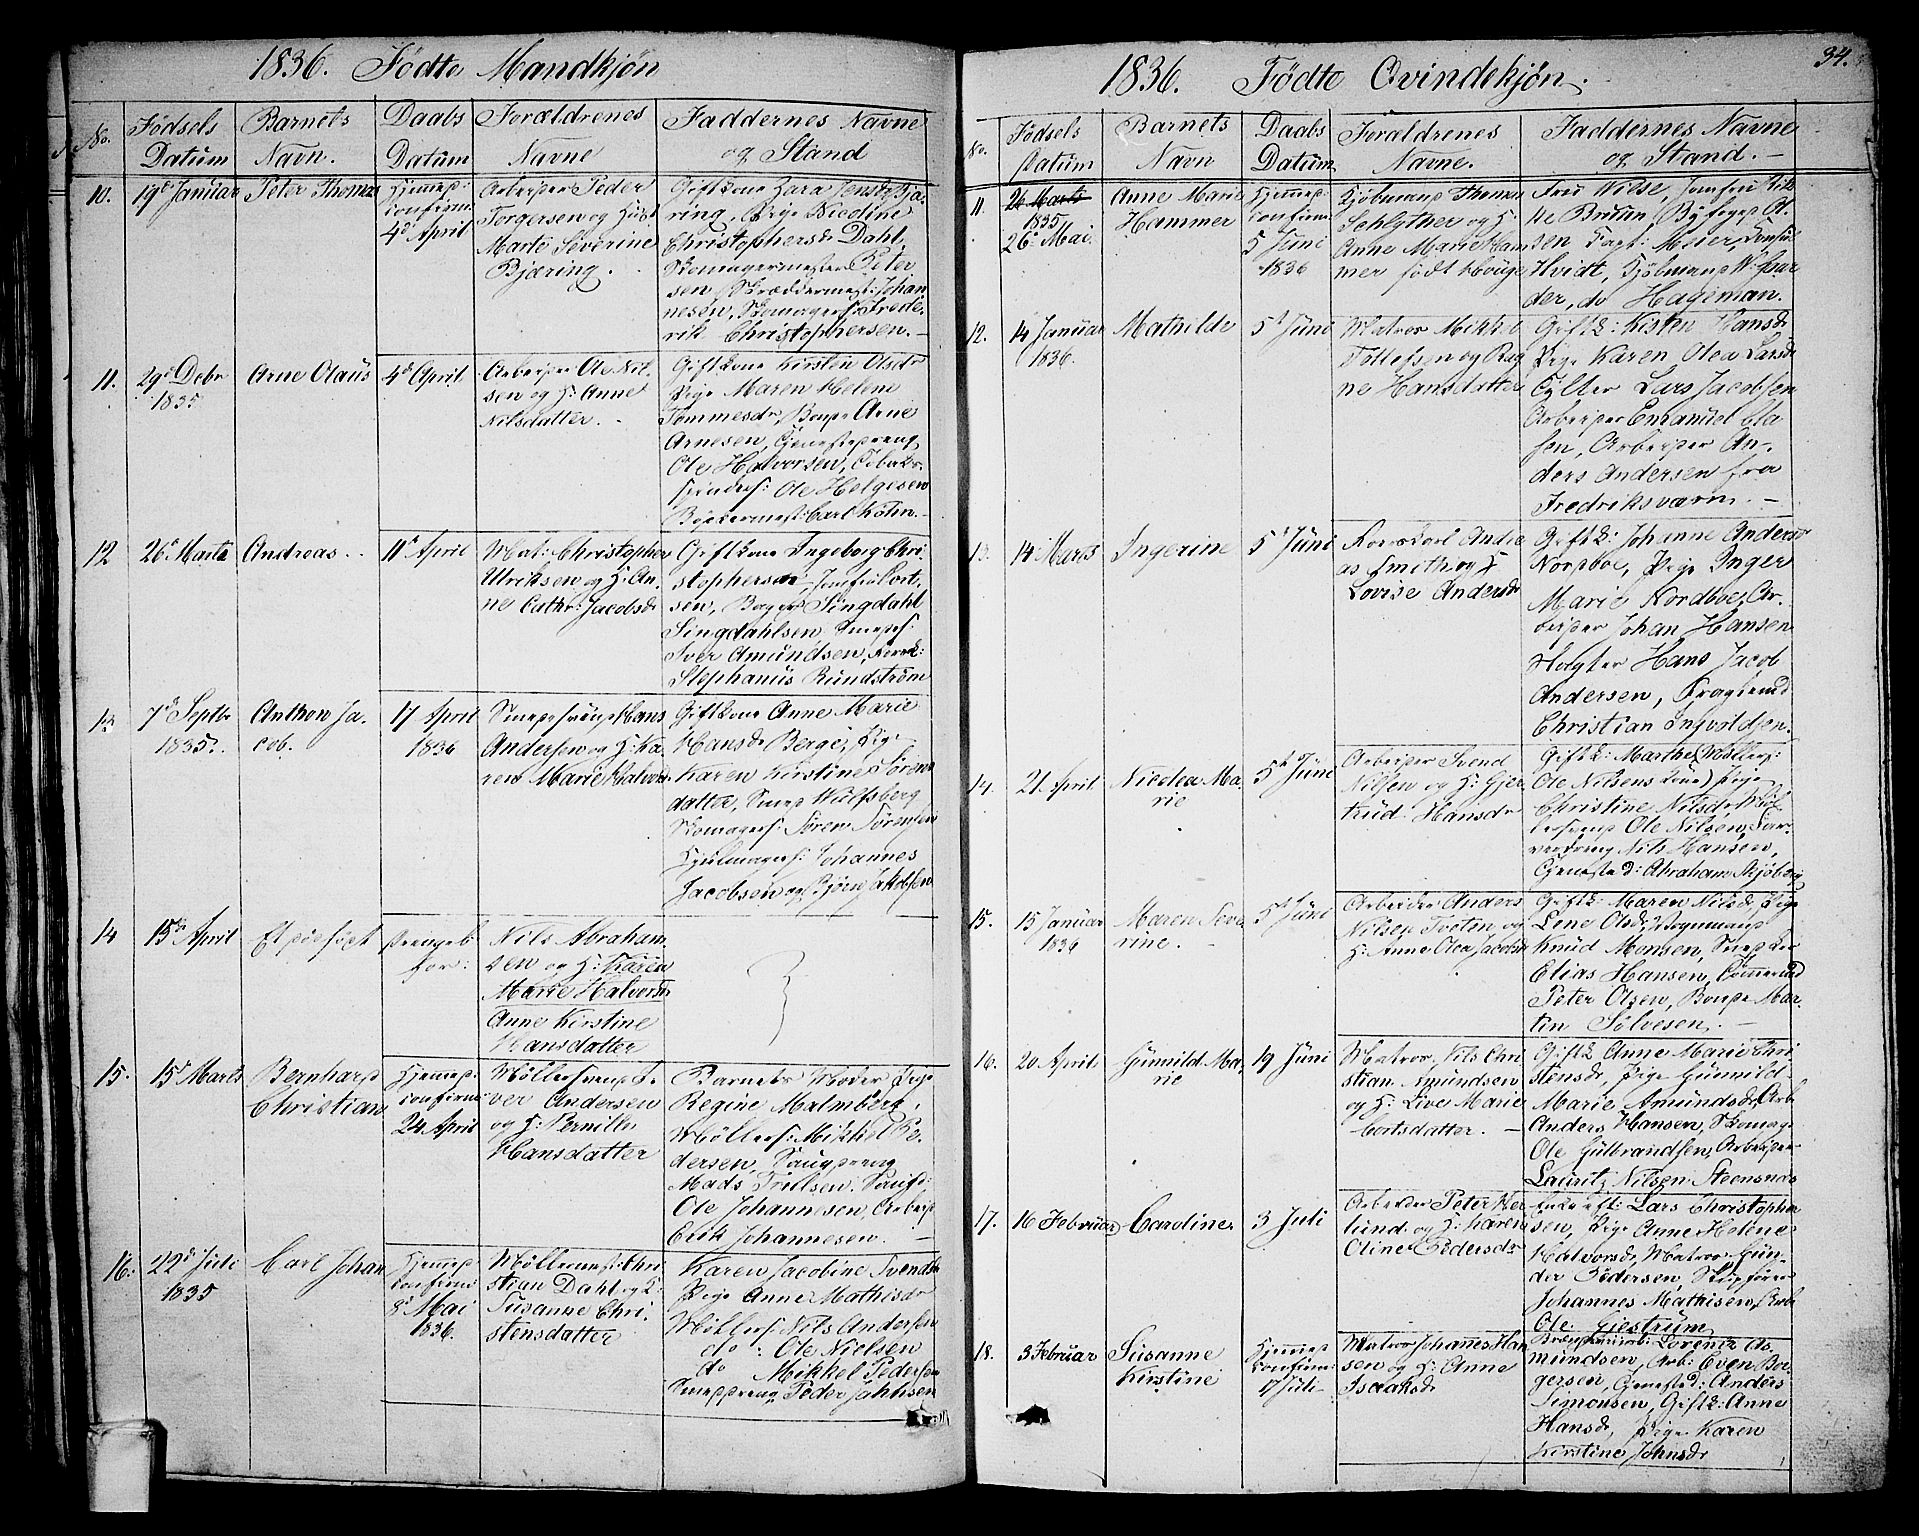 1836. Födte Mandkjön
No.
Födsels
Datum
Barnets
Navn.
Daabs
Datum
Forældrenes
Navne
Faddernes Navne
og Stand
10.
19d Januar
Peter Thomas
Hjemmed:
confirm:
4d April
Arbeider Peder
Torgersen og Hust
Marte Severine
Bjæring.
Giftkone Zara Jensdr Bjæ
ring, Pige Nicoline
Christophersdr Dahl,
Skomagermester Peter
sen, Skræddermest: Johan
nesen, Skomagers: Frede
rik Christophersen. –
11.
29d Debr
1835
Arne Olaüs
4d April
Arbeider Ole Nil
sen og H: Anne
Nilsdatter.
Giftkone Kirsten Olsdr
Pige Maren Helene
Tommesdr, Bonde Arne
Arnesen, Tjenestedreng
Ole Halvorsen, Tobaks
spinders: Ole Helgesen
Bödkermest: Carl Kölin. –
12
26d Marts
Andreas
11d April
Mat: Christopher
Ulriksen og H: An
ne Cathr: Jacobsdr
Giftkone Ingeborg Chri
stophersen, Jomfru Cort
sen, Bager Singdahl
Singdahlsen, Smeds:
Iver Amundsen,
Stephanüs Rundström
13
7d Septbr
1835.
Anthon Ja
cob.
17 April
1836
Smedesvend Hans
Andersen og H: Ka
ren Marie Halvorsdr
Giftkone Anne Marie
Hansdr Berge, Pige
Karen Kirstine Sören
datter, Smed Wulfsberg
Skomagers: Sören Sörensen
Hjulmagers: Johannes
Jacobsen og Björn Jakobsen
14
15de April
Et dödfödt
Drengeb
for:
Nils Abraham
sen og H: Karen
Marie Halvorsdr
Anne Kirstine
Hansdatter
15.
15d Marts
Bernhard
Christian
Hjemmed:
confirm:
24 April
Möllersvend I
ver Andersen
og H: Pernille
Hansdatter
Barnets Moder, Pige
Regine Malmberg,
Möllers: Mikkel Pe
dersen, Savgdreng
Mads Trulsen,
Ole Johannesen, Arbeid
Erik Johannesen. –
16.
22d Juli
1835
Carl Johan
Hjemmed
confirm:
8d Mai
1836.
Möllermest: Chri
stian Dahl og H:
Susanne Chri
stensdatter
Karen Jacobine Svendsdr
Pige Anne Mathisdr
Möllers: Nils Andersen
do : Ole Nielsen
do Mikkel Pedersen
Smeddreng Peder Jahnsen
34.
1836. Födte Qvindekjön.
No.
Födsels
Datum
Barnets
Navn
Daabs
Datum
Forældrenes
Navne.
Faddernes Navne
og Stand. –
11.
26 Marts
1835
26d Mai.
Anne Marie
Hammer
Hjemmed
confirm
5 Juni
1836
Kjöbmand Thomas
Schlyther og H:
Anne Marie Ham
mer födt Houge
Fru Wilse, Jomfru Rik
ke Bruun, Byfoged A.
sen Fogt: Meier, Consul
Hvidt, Kjöbmand
der, do Hageman.
12.
14 Januar
1836.
Mathilde
5d Juni
Matros Mikkel
Tollefsen og Rag
ne Hansdatter
Giftk: Kisten Hansdr
Pige Karen Olea Larsdr
Lars Jacobsen
Arbeider Emanuel Cla
sen, Arbeider An-
ders Andersen fra
Fredriksværn. –
13.
14 Marts
Ingerine
5d Juni
Andre
as Smith og H
Lovise Andersdr
Giftk: Johanne Andersdr
Nordboe, Pige Inger
Marie Nordboe, Ar-
beider Johan Hansen
Vægter Hans Jacob
Andersen, Dragkund
Christian Ingvoldsen.
14.
21 April
Nicolea Ma
rie
5d Juni
Arbeider Svend
Nilsen og H: Gjer
trud Hansdr
Giftk: Marthe (Möllers:
Ole Nilsens kone) Pige
Christine Nilsdr, Möl
lersvend Ole Nilsen,
Nils Hansen,
Tjenested: Abraham Kjöberg
15.
15 Januar
1836
Maren Seve
rine.
5d Juni
Arbeider Anders
Nilsen Tveten og
H: Anne Olea Jacobsdr
Giftk: Maren Nilsdr, Pige
Lene Olsdr, Vognmand
Knud Monsen, Smed
Elias Hansen, Tömmermd
Peter Olsen, Bonde Mar
tin Sölvesen. –
16.
20 April
Gunnild Ma
rie
19 Juni
Matros Nils Chri
stian Amundsen
og H: Live Marie
Cortsdatter. –
Giftk Anne Marie Chri
stensdr, Pige Gunnild
Marie Amundsdr, Arb:
Anders Hansen, Skomag:
Ole Gulbrandsen, Arbeider
Lauritz Nilsen Steensnæs
17.
16 Februar
Caroline
3 Juli
Arbeider Peter Her
lund og H: Karen
Oline Pedersdr
Enkeaft: Lars Christopher
sen, Pige Anne Helene
Halvorsdr, Matros Gun
der Pedersen, Skipförer
Johannes Mathisen,
Ole Gjestrum
18.
3 Februar
Susanne
Kirstine
Hjemmed
confirm:
17 Juli
Matros Johannes Han
sen og H: Anne
Isaaksdr
Lorentz As
mundsen, Arb: Even Bor
gersen, Tjenested: Anders
Simonsen, Giftk: Anne
Hansdr, Pige Karen
Kirstine Johnsdr